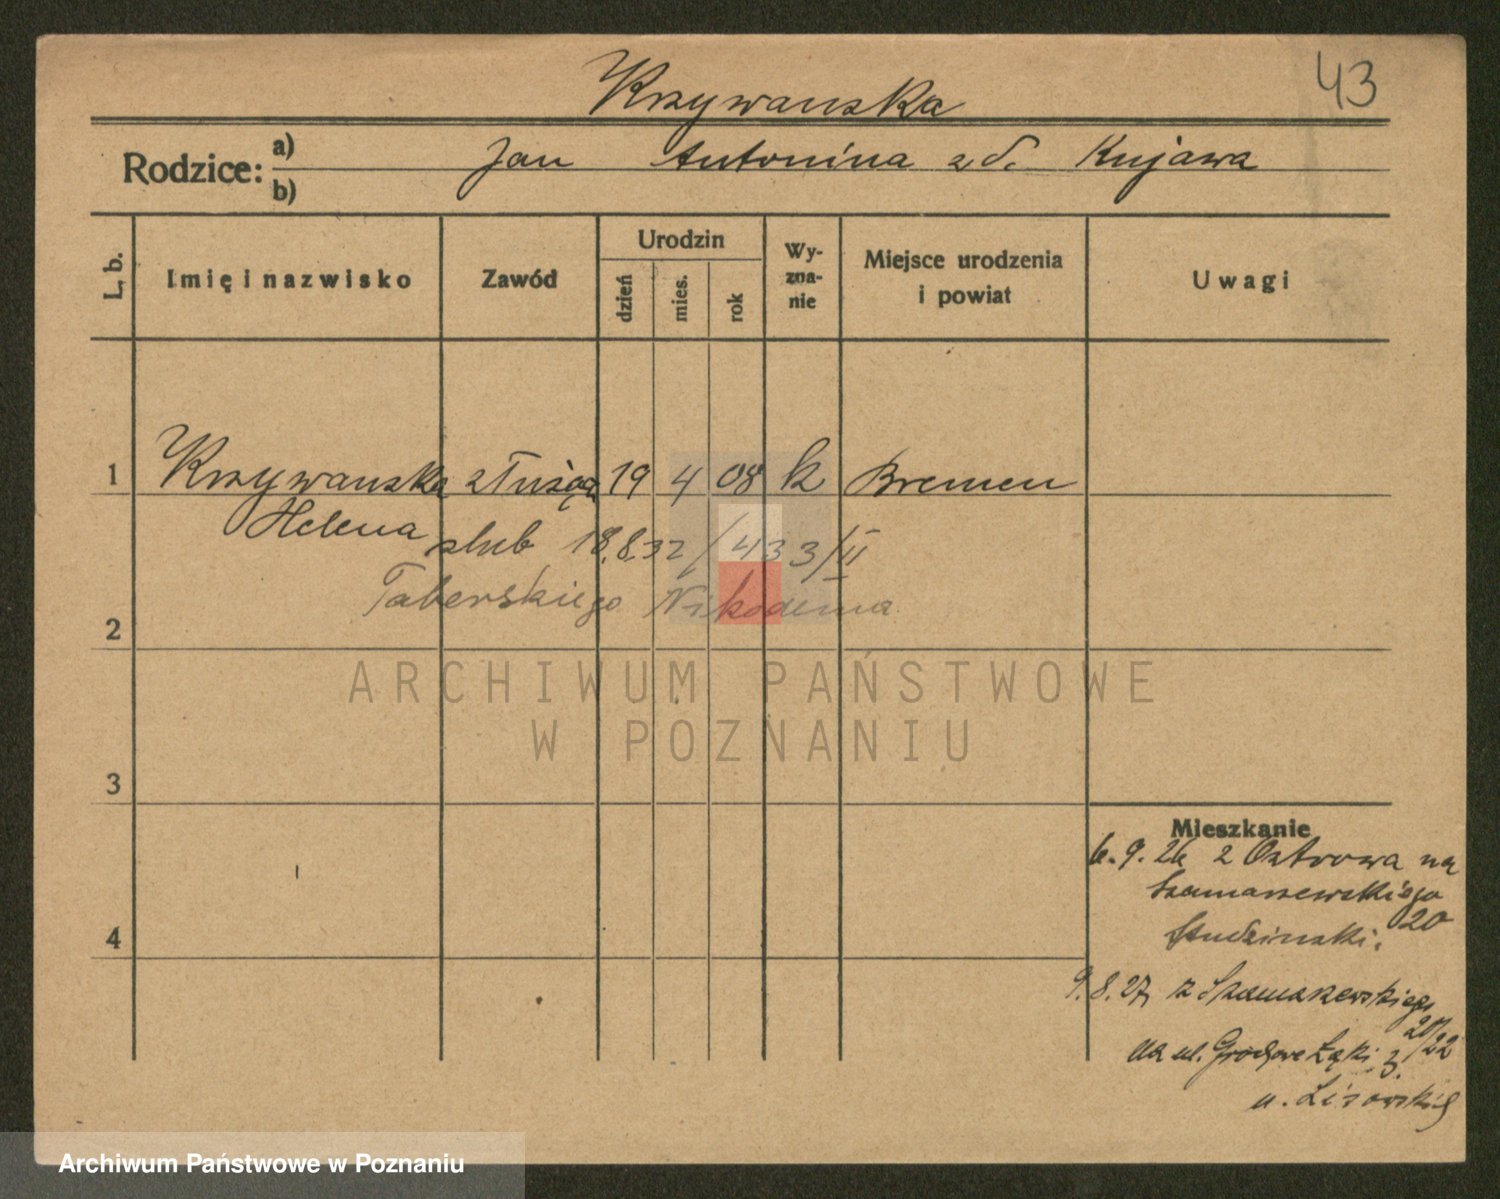 43
Krzywanska
Rodzice: a) Jan Antonina z d. Kujawa
b)
L. b. Imię i nazwisko Zawód Urodzin dzień mies. rok Wy-zna-nie Miejsce urodzenia i powiat Uwagi
1 Krzywanska służąca 19 4 08 k Bremen
Helena ślub 18.8.32 / 433/II
Taberskiego Nikodema
2
ARCHIWUM PAŃSTWOWE
W POZNANIU
3
4
Mieszkanie
6.9.26 z Ostrowa na
Szamarzewskiego
20
Studzinski.
9.8.27, z Szamarzewskiego
20/22
na ul. Grochowe Łąki 3.
u. Lisowskiej
Archiwum Państwowe w Poznaniu